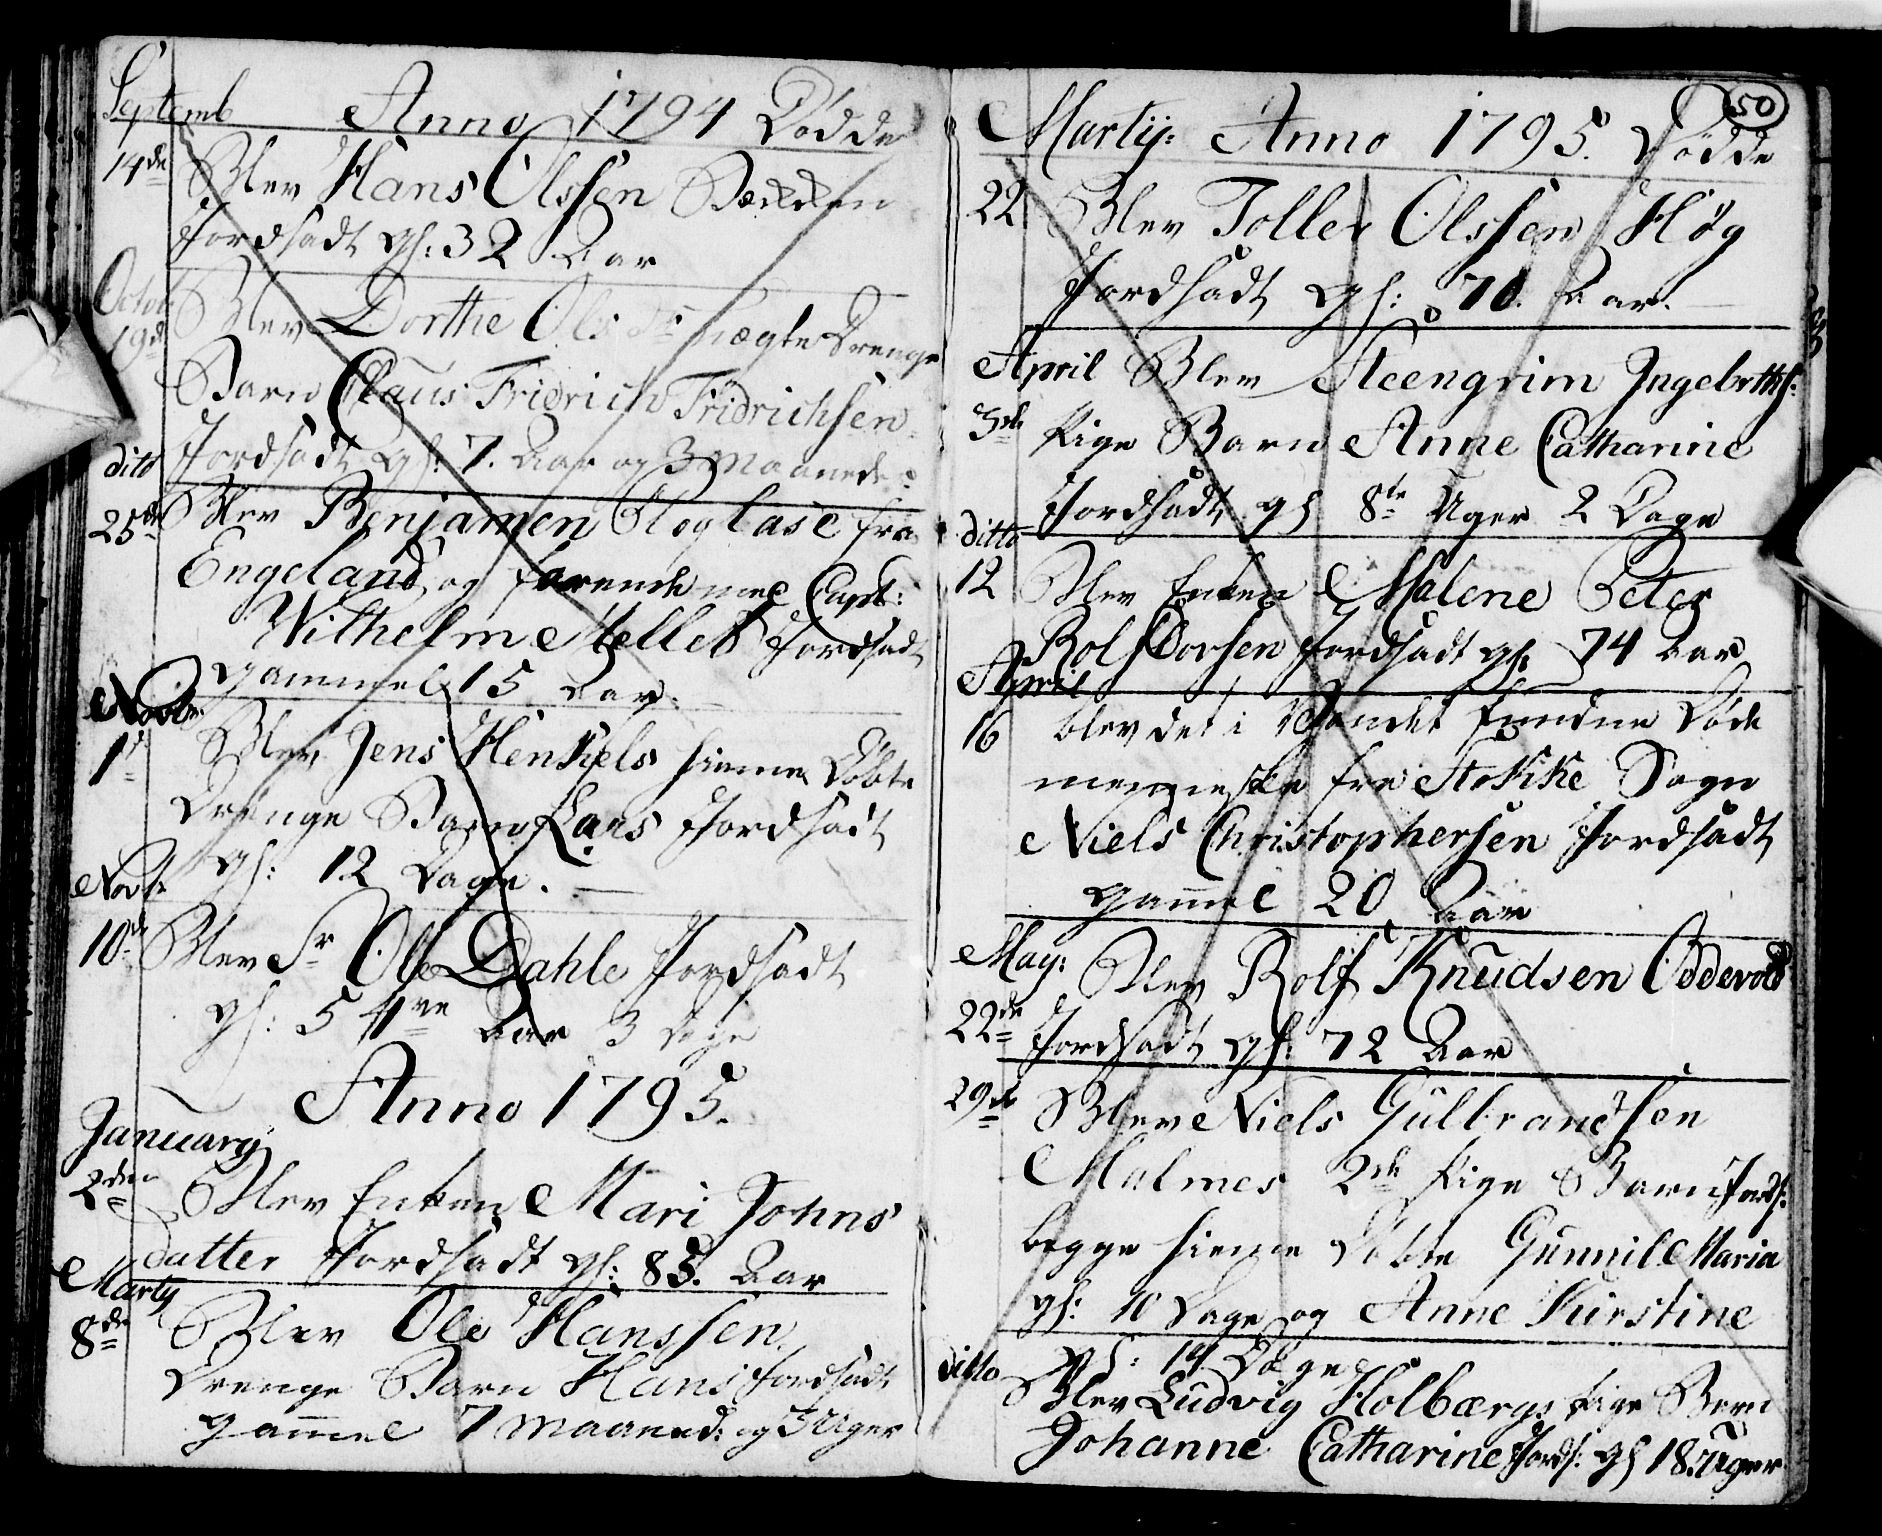 Septemb Anno 1794 Dødde
14de Blev Hans Olssen
Jordsadt gl: 32 Aar
Octob
19de Blev Dorthe Ols uægte Drenge
Barn Claus Fridrich Fridrichsen
Jordsadt gl: 7. Aar og 3 Maaneder
dito
25de Blev Benjamen fra
Engeland, og med Capt:
Wilhelm Meller Jordsadt
gammel 15 Aar.
Novbr
1d Blev Jens Henkels hieme Døbte
Drenge Barn Lars Jordsadt
gl: 12 Dage.
Novbr
10de Blev Sr Ole Dahle Jordsadt
gl: 54re Aar 3 Dage
Anno 1795.
January
2den Blev Enken Mari Johns
datter Jordsadt gl: 85. Aar
Martÿ
8de Blev Ole Hanssen
Drenge Barn Hans Jordsadt
gam̅el 7 Maaned: og 3 Uger
50
Martij: Anno 1795. Dødde
22 Blev Toller Olssen Høg
Jordsadt gl: 70. Aar.
April Blev Steengrim Ingebrths:
3de Pige Barn Anne Catharine
Jordsadt gl 8te Uger 2 Dage
ditto
12 Blev Enken Malene Peter
Jordsadt gl: 74 Aar
April
16 blev det i Vandet fundne Døde
menneske fra Stokke Sogn
Niels Christophersen Jordsadt
gam̅el 20 Aar
May: Blev Rolf Knudsen Oddevold
22de Jordsadt gl: 72 Aar
29de Blev Niels Gulbrandsen
Malmes 2de Pige Barn Jords:
begge hieme Døbte Gunnil Maria
gl: 10 Dage og Anne Kirstine
gl: 14 Dage
ditto Blev Ludvig Holbærgs Pige Barn
Johanne Catharine Jords: gl 18. Uger